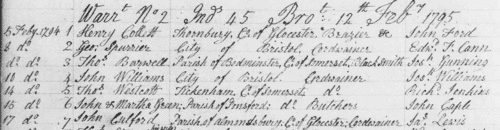 Warrt. No 2 Ind 45 Brot. 12th Feby 1795
5 Feby. 1794 1 Henry Collett Thornbury, Co. of Glocester Brazier &c John Ford
8 do. 2 Geo: Spurrier City of Bristol Cordwainer Edwd. T. Cann
do do. 3 Thos. Barwell Parish of Bedminster, C. of Somerset, Black Smith Jos: Gunning
10 do. 4 John Williams City of Bristol. Cordwainer Jos: Williams
14 do 5 Thos. Westcott Tickenham, C. of Somerset do Richd. Jenkins
16 do 6 John & Martha Green; Parish of Durford; do Butchers John Caple
17 do, 7 John Culford Parish of Almondsbury; C. of Glocester; Cordwainer Jas. Lewis